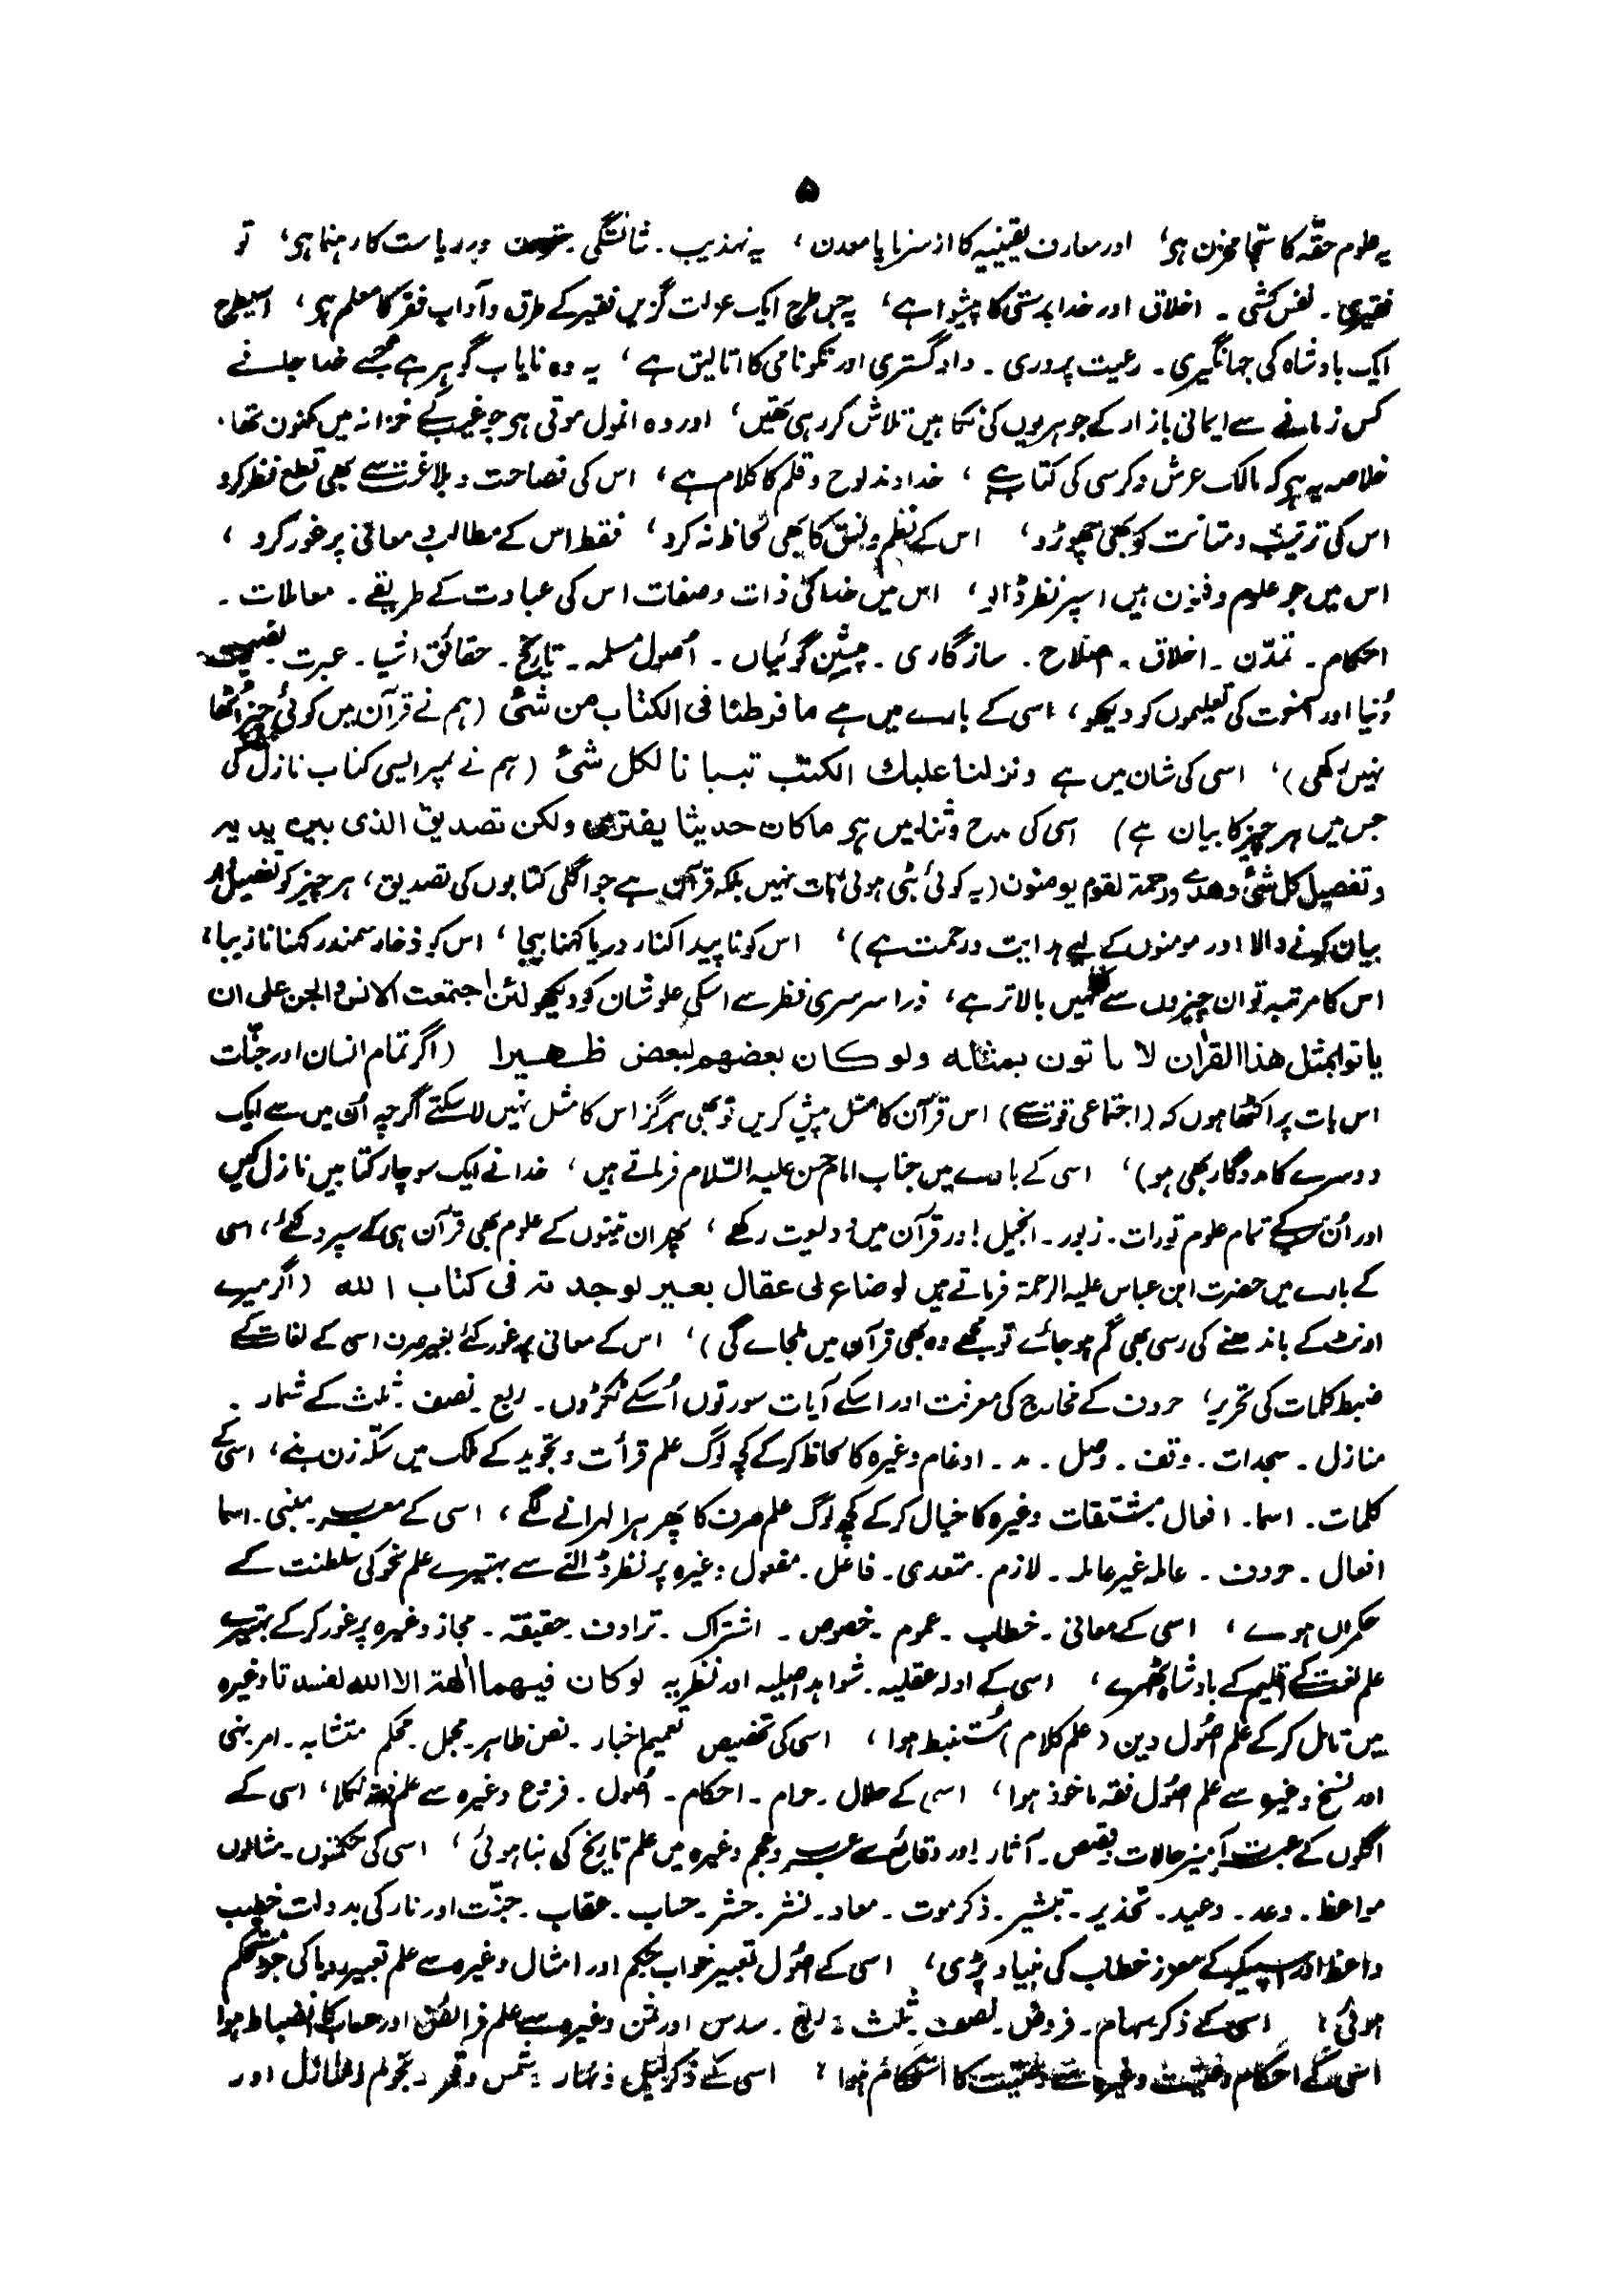 ۵
یہ علوم حقّہ کا سچّا مخزن ہی، اور معارف یقینیہ کا از سرتاپا معدن، یہ تہذیب ۔ شائستگی ۔ تمدن ور ریاست کا رہنما ہی، تو
فقیری ۔ نفس کشی ۔ اخلاق اور خدا پرستی کا پیشوا ہے، یہ جس طرح ایک عزلت گزیں فقیر کے طرق و آداب فقر کا معلم ہی، اسیطرح
ایک بادشاہ کی جہانگیری ۔ رعیت پروری ۔ دادگستری اور نکونامی کا اتالیق ہے، یہ وہ نایاب گوہر ہے جسے خدا جانے
کس زمانے سے ایمانی بازار کے جوہریوں کی نگاہیں تلاش کر رہی تھیں، اور وہ انمول موتی ہی جو غیب کے خزانہ میں مکنون تھا۔
خلاصہ یہ ہی کہ مالک عرش و کرسی کی کتاب ہے، خداوند لوح و قلم کا کلام ہے، اس کی فصاحت و بلاغت سے بھی قطع نظر کرو
اس کی ترتیب و متانت کو بھی چھوڑو، اس کے نظم و نسق کا بھی لحاظ نہ کرو، فقط اس کے مطالب و معانی پر غور کرو،
اس میں جو علوم و فنون ہیں اسپر نظر ڈالو، اس میں خدا کی ذات و صفات اس کی عبادت کے طریقے ۔ معاملات ۔
احکام ۔ تمدّن ۔ اخلاق ۔ اصلاح ۔ سازگاری ۔ پیشین گوئیاں ۔ اُصول مسلمہ ۔ تاریخ ۔ حقائق اشیا ۔ عبرت ۔ نصیحت
دُنیا اور آخرت کی تعلیموں کو دیکھو، اسی کے بارے میں ہے ما فرطنا فی الکتاب من شئ (ہم نے قرآن میں کوئی چیز اُٹھا
نہیں رکھی)، اسی کی شان میں ہے ونزلنا علیك الکتٰب تبیانا لکل شئ (ہم نے تمپر ایسی کتاب نازل کی
جس میں ہر چیز کا بیان ہے) اسی کی مدح و ثنا میں ہی ما کان حدیثا یفتریٰ ولکن تصدیق الذی بین یدیہ
وتفصیل کل شئ وھدے ورحمة لقوم یومنون (یہ کوئی بنی ہوئی بات نہیں بلکہ قرآن ہے جو اگلی کتابوں کی تصدیق، ہر چیز کو تفصیل وار
بیان کرنے والا اور مومنوں کے لیے ہدایت و رحمت ہے)، اس کو ناپیدا کنار دریا کہنا بیجا، اس کو ذخار سمندر کہنا نازیبا،
اس کا مرتبہ تو ان چیزوں سے کہیں بالاتر ہے، ذرا سرسری نظر سے اسکی علو شان کو دیکھو لئن اجتمعت الانس والجن علی ان
یاتوا بمثل ھذا القراٰن لا یاتون بمثلہ ولو کان بعضھم لبعض ظھیرا (اگر تمام انسان اور جنّات
اس بات پر اکٹھا ہوں کہ (اجتماعی قوت سے) اس قرآن کا مثل پیش کریں تو بھی ہرگز اس کا مثل نہیں لا سکتے اگرچہ اُن میں سے ایک
دوسرے کا مددگار بھی ہو)، اسی کے بارے میں جناب امام حسن علیہ السّلام فرماتے ہیں، خدا نے ایک سو چار کتابیں نازل کیں
اور اُن سب کے تمام علوم تورات ۔ زبور ۔ انجیل اور قرآن میں ودیعت رکھے، پھر ان تینوں کے علوم بھی قرآن ہی کے سپرد کئے، اسی
کے بارے میں حضرت ابن عباس علیہ الرحمۃ فرماتے ہیں لوضاع لی عقال بعیر لوجدتہ فی کتاب الله (اگر میرے
اونٹ کے باندھنے کی رسی بھی گم ہو جائے تو مجھے وہ بھی قرآن میں ملجاے گی)، اس کے معانی پر غور کئے بغیر صرف اسی کے لغات کے
ضبط کلمات کی تحریر، حروف کے مخارج کی معرفت اور اسکے آیات سورتوں اُسکے ٹکڑوں ۔ ربع ۔ نصف ۔ ثلث کے شمار ۔
منازل ۔ سجدات ۔ وقف ۔ وصل ۔ مد ۔ ادغام وغیرہ کا لحاظ کر کے کچھ لوگ علم قرأت و تجوید کے ملک میں سکّہ زن بنے، اسی کے
کلمات ۔ اسما ۔ افعال مشتقات وغیرہ کا خیال کر کے کچھ لوگ علم صرف کا پھرہرا لہرانے لگے، اسی کے معرب ۔ مبنی ۔ اسما
افعال ۔ حروف ۔ عاملہ غیر عاملہ ۔ لازم ۔ متعدی ۔ فاعل ۔ مفعول وغیرہ پر نظر ڈالنے سے بہتیرے علم نحو کی سلطنت کے
حکمراں ہوے، اسی کے معانی ۔ خطاب ۔ عموم ۔ خصوص ۔ اشتراک ۔ ترادف ۔ حقیقہ ۔ مجاز وغیرہ پر غور کر کے بہتیرے
علم لغت کے اقلیم کے بادشاہ ٹھہرے، اسی کے ادلہ عقلیہ ۔ شواہد اصلیہ اور نظریہ لو کان فیھما اٰلھة الا الله لفسدتا وغیرہ
میں تامل کر کے علم اصُول دین (علم کلام) مُستنبط ہوا، اسی کی تخصیص تعمیم اخبار ۔ نص ظاہر ۔ مجمل ۔ محکم متشابہ ۔ امر نہی
اور نسخ وغیرہ سے علم اصُول فقہ ماخوذ ہوا، اسی کے حلال ۔ حرام ۔ احکام ۔ اُصول ۔ فروع وغیرہ سے علم فقہ نکلا، اسی کے
اگلوں کے عبرت آمیز حالات قصص ۔ آثار اور وقائع سے عرب و عجم وغیرہ میں علم تاریخ کی بنا ہوئی، اسی کی حکمتوں ۔ مثالوں
مواعظ ۔ وعد ۔ وعید ۔ تحذیر ۔ تبشیر ۔ ذکر موت ۔ معاد ۔ نشر ۔ حشر ۔ حساب ۔ عقاب ۔ جنّت اور نار کی بدولت خطیب
واعظ اور اسپیکر کے معزز خطاب کی بنیاد پڑی، اسی کے اصُول تعبیر خواب حکم اور امثال وغیرہ سے علم تعبیر رویا کی جڑ مستحکم
ہوئی، اسی کے ذکر سہام ۔ فروض ۔ نصف ۔ ثلث ۔ ربع ۔ سدس اور ثمن وغیرہ سے علم فرائض اور حساب کا انضباط ہوا
اسی کے احکام وصیت وغیرہ سے کا استحکام ہوا، اسی کے ذکر لیل و نہار ۔ شمس و قمر ۔ نجوم اور